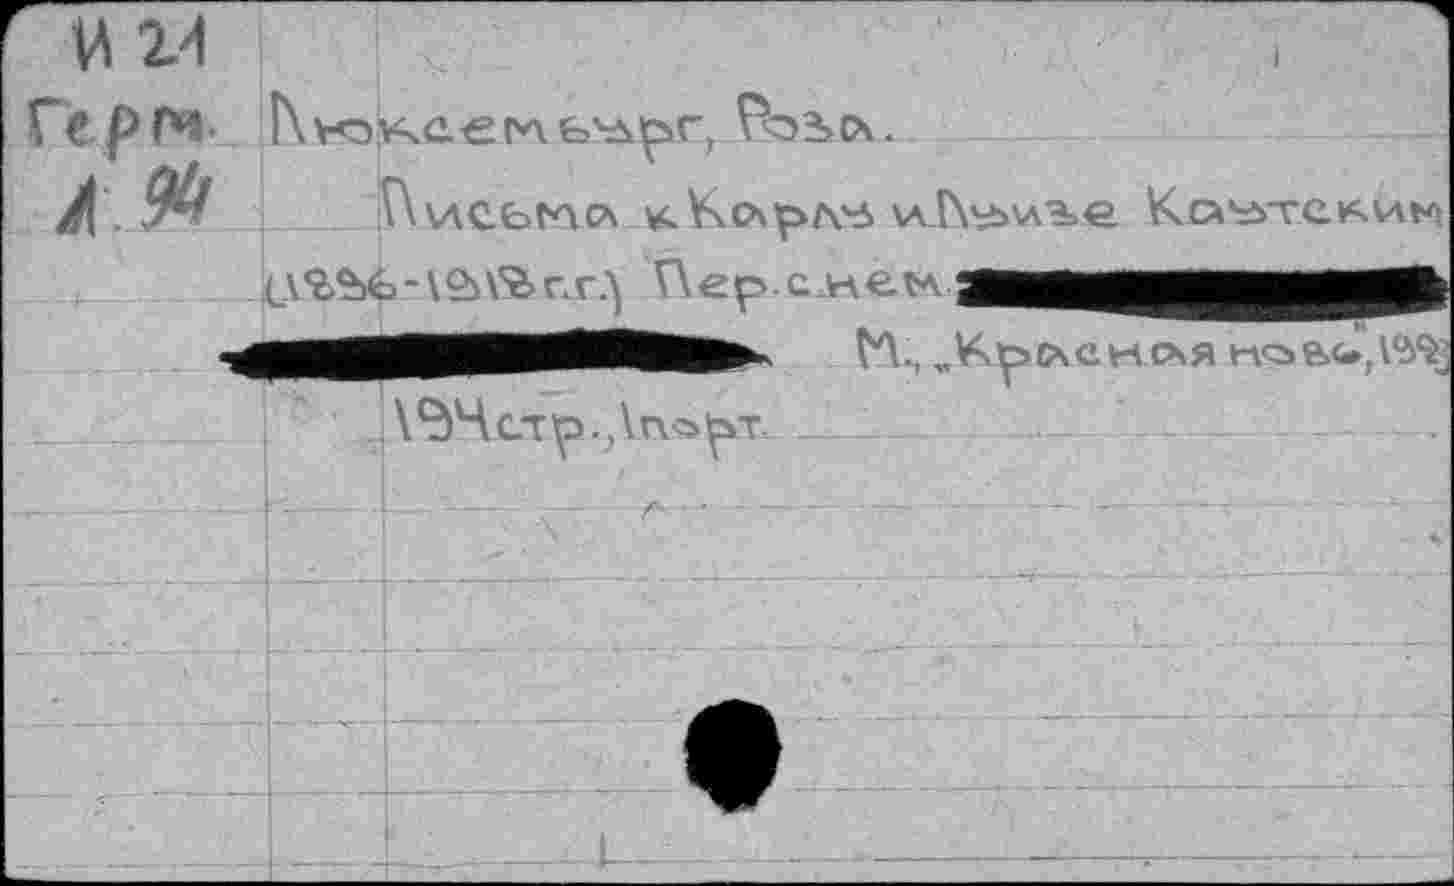 И 21
Герм. Люксембург, Роза.
Л. 94 Письма к Карлу и Луизе Каутским
(1896-1918 г.г.) Пер. с нем.
М., „Красная новь",
194 стр., 1 порт.